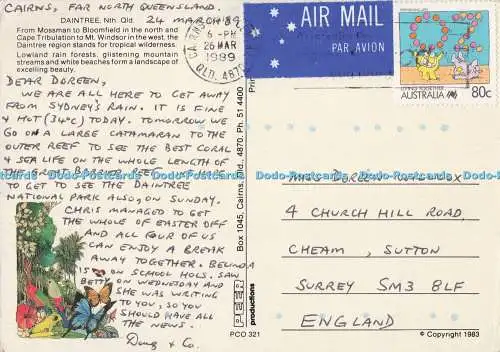 CAIRNS, FAR NORTH QUEENSLAND.
DAINTREE, Nth Qld. 24 MARCH '89
From Mossman to Bloomfield in the north and
Cape Tribulation to Mt. Windsor in the west, the
Daintree region stands for tropical diversity.
Lowland rain forests, glistening mountain
streams and white beaches form a landscape of
excelling beauty.
DEAR DOREEN,
WE ARE ALL HERE TO GET AWAY
FROM SYDNEY'S RAIN. IT IS FINE
& HOT (34°C) TODAY. TOMORROW WE
GO ON A LARGE CATAMARAN TO THE
OUTER REEF TO SEE THE BEST CORAL
& SEA LIFE ON THE WHOLE LENGTH OF
THE GREAT BARRIER REEF. WE HERE
TO GET TO SEE THE DAINTREE
NATIONAL PARK ALSO, ON SUNDAY.
CHRIS MANAGED TO GET
THE WHOLE OF EASTER OFF
AND ALL FOUR OF US
CAN ENJOY A BREAK
AWAY TOGETHER. BELINDA
IS ON SCHOOL HOLS. SAW
BETTY ON WEDNESDAY AND
SHE WAS WRITING
TO YOU, SO YOU
SHOULD HAVE ALL
THE NEWS.
Doug & Co.
6-PM
26 MAR
1989
QLD. 4870
AIR MAIL
PAR AVION
LIVING TOGETHER
AUSTRALIA 80c
Box 1045, Cairns, Qld. 4870. Ph. 51 4400
PEER
productions
PCO 321
MRS DOREEN
4 CHURCH HILL ROAD,
CHEAM, SUTTON
SURREY SM3 8LF
ENGLAND
© Copyright 1983
Dodo-Postcards Dodo-Postcards Dodo-Postcards Dodo-Postcards